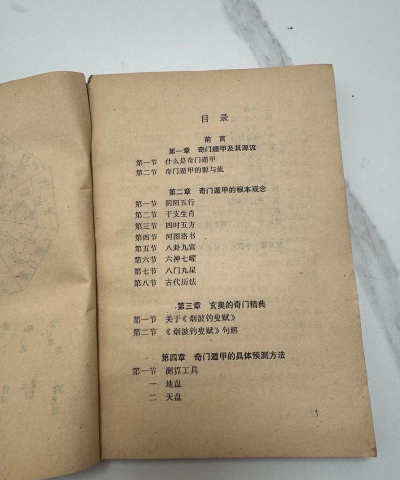 目录
前言
第一章 奇门遁甲及其源流
第一节 什么是奇门遁甲
第二节 奇门遁甲的源与流
第二章 奇门遁甲的根本观念
第一节 阴阳五行
第二节 干支生肖
第三节 四时五方
第四节 河图洛书
第五节 八卦九宫
第六节 六神七曜
第七节 八门九星
第八节 古代历法
第三章 玄奥的奇门精典
第一节 关于《烟波钓叟赋》
第二节 《烟波钓叟赋》句解
第四章 奇门遁甲的具体预测方法
第一节 测算工具
一 地盘
二 天盘